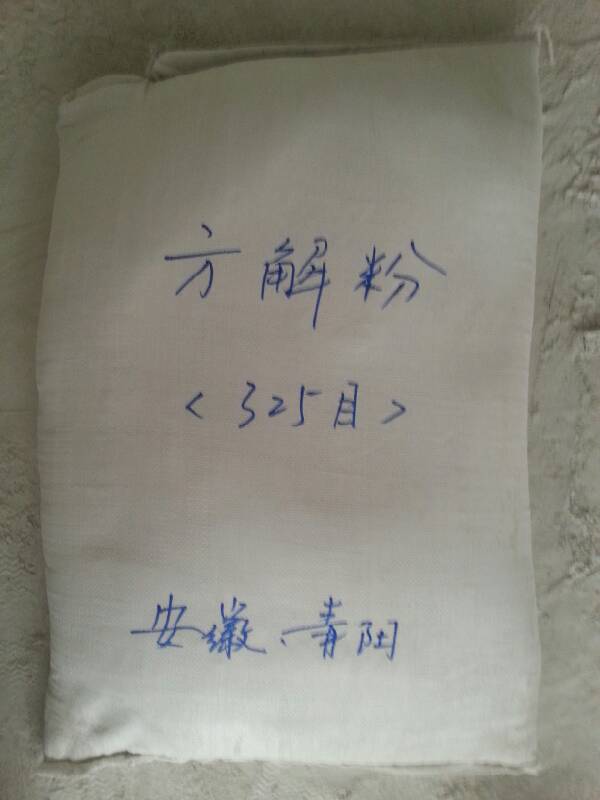 方解粉
<325目>
安徽、青阳